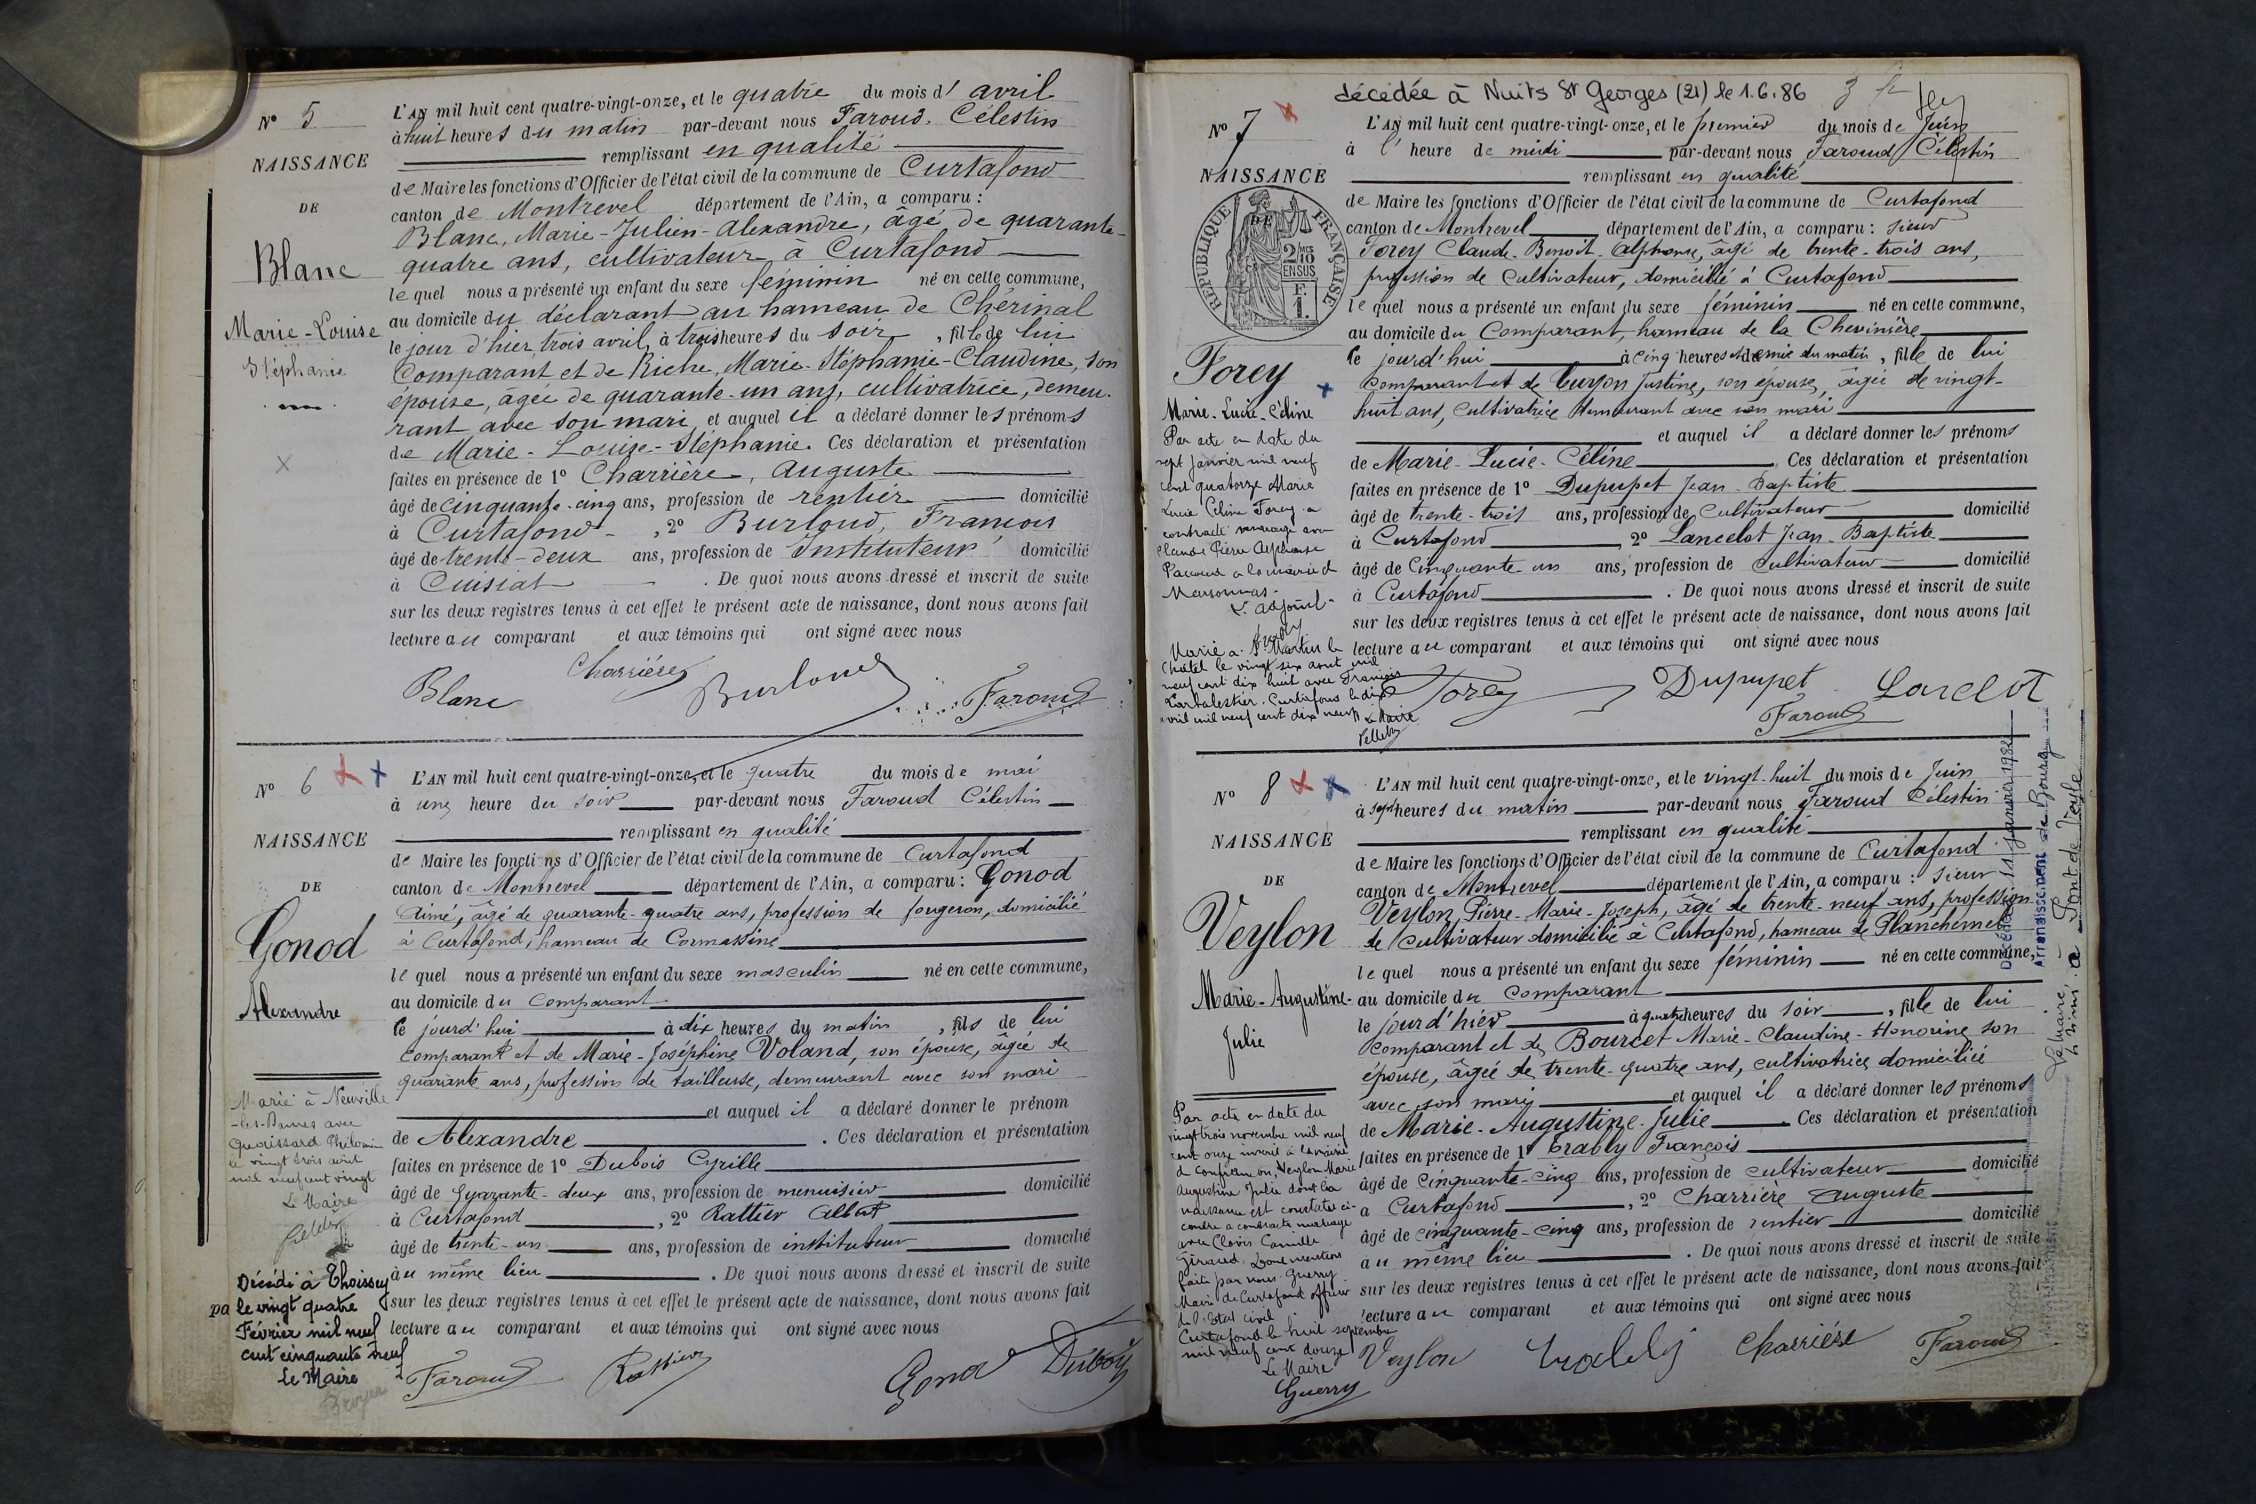 N° 5
NAISSANCE
DE
Blanc
Marie-Louise
Stéphanie
L'AN mil huit cent quatre-vingt-onze, et le quatre du mois d'avril
à huit heures du matin par-devant nous Faroud, Célestin
remplissant en qualité
de Maire les fonctions d'Officier de l'état civil de la commune de Curtafond
canton de Montrevel département de l'Ain, a comparu :
Blanc, Marie-Julien-Alexandre, âgé de quarante-
quatre ans, cultivateur à Curtafond
lequel nous a présenté un enfant du sexe féminin né en cette commune,
au domicile du déclarant au hameau de Chérinal
le jour d'hier, trois avril, à trois heures du soir, fille de lui
Comparant et de Riche, Marie-Stéphanie-Claudine, son
épouse, âgée de quarante-un ans, cultivatrice, demeu-
rant avec son mari, et auquel il a déclaré donner les prénoms
de Marie-Louise-Stéphanie. Ces déclaration et présentation
faites en présence de 1° Charrière, Auguste
âgé de cinquante-cinq ans, profession de rentier domicilié
à Curtafond, 2° Burloud, François
âgé de trente-deux ans, profession de Instituteur domicilié
à Cuisiat. De quoi nous avons dressé et inscrit de suite
sur les deux registres tenus à cet effet le présent acte de naissance, dont nous avons fait
lecture au comparant et aux témoins qui ont signé avec nous
Blanc Charrière Burloud Faroud
N° 6
NAISSANCE
DE
Gonod
Alexandre
Marié à Neuville
-les-Dames avec
le vingt trois avril
mil neuf cent vingt
Le Maire
Décédé à Thoissey
le vingt quatre
Février mil neuf
cent cinquante neuf
Le Maire
L'AN mil huit cent quatre-vingt-onze, et le quatre du mois de mai
à une heure du soir par-devant nous Faroud Célestin
remplissant en qualité
de Maire les fonctions d'Officier de l'état civil de la commune de Curtafond
canton de Montrevel département de l'Ain, a comparu : Gonod
Aimé, âgé de quarante-quatre ans, profession de forgeron, domicilié
à Curtafond, hameau de Cormassine
lequel nous a présenté un enfant du sexe masculin né en cette commune,
au domicile du comparant
ce jourd'hui à dix heures du matin, fils de lui
comparant et de Marie-Joséphine Voland, son épouse, âgée de
quarante ans, profession de tailleuse, demeurant avec son mari
et auquel il a déclaré donner le prénom
de Alexandre. Ces déclaration et présentation
faites en présence de 1° Dubois Cyrille
âgé de quarante-deux ans, profession de menuisier domicilié
à Curtafond, 2° Rattier Albert
âgé de trente-un ans, profession de instituteur domicilié
au même lieu. De quoi nous avons dressé et inscrit de suite
sur les deux registres tenus à cet effet le présent acte de naissance, dont nous avons fait
lecture au comparant et aux témoins qui ont signé avec nous
Faroud Rattier Gonod Dubois
décédée à Nuits St Georges (21) le 1.6.86
N° 7
NAISSANCE
RÉPUBLIQUE FRANÇAISE
2/10 EN SUS
Forey
Marie-Lucie-Céline
Par acte en date du
sept janvier mil neuf
cent quatorze Marie
Lucie Céline Forey a
contracté mariage avec
Claude Pierre Alphonse
Paccoud à la mairie de
Marsonnas.
L'adjoint
Marié à St Martin le
Châtel le vingt six août mil
neuf cent dix huit avec François
Curtafond le dix
avril mil neuf cent dix neuf Le Maire
L'AN mil huit cent quatre-vingt-onze, et le premier du mois de Juin
à l'heure de midi par-devant nous Faroud Célestin
remplissant en qualité
de Maire les fonctions d'Officier de l'état civil de la commune de Curtafond
canton de Montrevel département de l'Ain, a comparu : sieur
Forey Claude-Benoît-Alphonse, âgé de trente-trois ans,
profession de cultivateur, domicilié à Curtafond
lequel nous a présenté un enfant du sexe féminin né en cette commune,
au domicile du Comparant, hameau de la Chevinière
ce jourd'hui à cinq heures et demie du matin, fille de lui
comparant et de Curzon Justine, son épouse, âgée de vingt-
huit ans, cultivatrice demeurant avec son mari
et auquel il a déclaré donner les prénoms
de Marie-Lucie-Céline Ces déclaration et présentation
faites en présence de 1° Dupupet Jean-Baptiste
âgé de trente-trois ans, profession de cultivateur domicilié
à Curtafond, 2° Lancelot Jean-Baptiste
âgé de cinquante-un ans, profession de cultivateur domicilié
à Curtafond. De quoi nous avons dressé et inscrit de suite
sur les deux registres tenus à cet effet le présent acte de naissance, dont nous avons fait
lecture au comparant et aux témoins qui ont signé avec nous
Forey Dupupet Lancelot
Faroud
N° 8
NAISSANCE
DE
Veylon
Marie-Augustine-
Julie
Par acte en date du
vingt trois novembre mil neuf
cent onze inscrit à la mairie
de Confrançon, Veylon Marie
Augustine Julie dont la
naissance est constatée ci-
contre a contracté mariage
avec Clovis Camille
Giraud. Dont mention
faite par nous Guerry
Maire de Curtafond officier
de l'état civil
Curtafond le huit septembre
mil neuf cent douze
Le Maire
Guerry
L'AN mil huit cent quatre-vingt-onze, et le vingt-huit du mois de Juin
à sept heures du matin par-devant nous Faroud Célestin
remplissant en qualité
de Maire les fonctions d'Officier de l'état civil de la commune de Curtafond
canton de Montrevel département de l'Ain, a comparu : sieur
Veylon, Pierre-Marie-Joseph, âgé de trente-neuf ans, profession
de cultivateur domicilié à Curtafond, hameau de Planchemel
lequel nous a présenté un enfant du sexe féminin né en cette commune,
au domicile du comparant
le jour d'hier à quatre heures du soir, fille de lui
comparant et de Bourcet Marie-Claudine-Honorine son
épouse, âgée de trente-quatre ans, cultivatrice domiciliée
avec son mari et auquel il a déclaré donner les prénoms
de Marie-Augustine-Julie Ces déclaration et présentation
faites en présence de 1° Trably François
âgé de cinquante-cinq ans, profession de cultivateur domicilié
à Curtafond, 2° Charrière Auguste
âgé de cinquante-cinq ans, profession de rentier domicilié
au même lieu. De quoi nous avons dressé et inscrit de suite
sur les deux registres tenus à cet effet le présent acte de naissance, dont nous avons fait
lecture au comparant et aux témoins qui ont signé avec nous
Veylon Trably Charrière Faroud
Arrondissement de Bourg
à Pont de Veyle